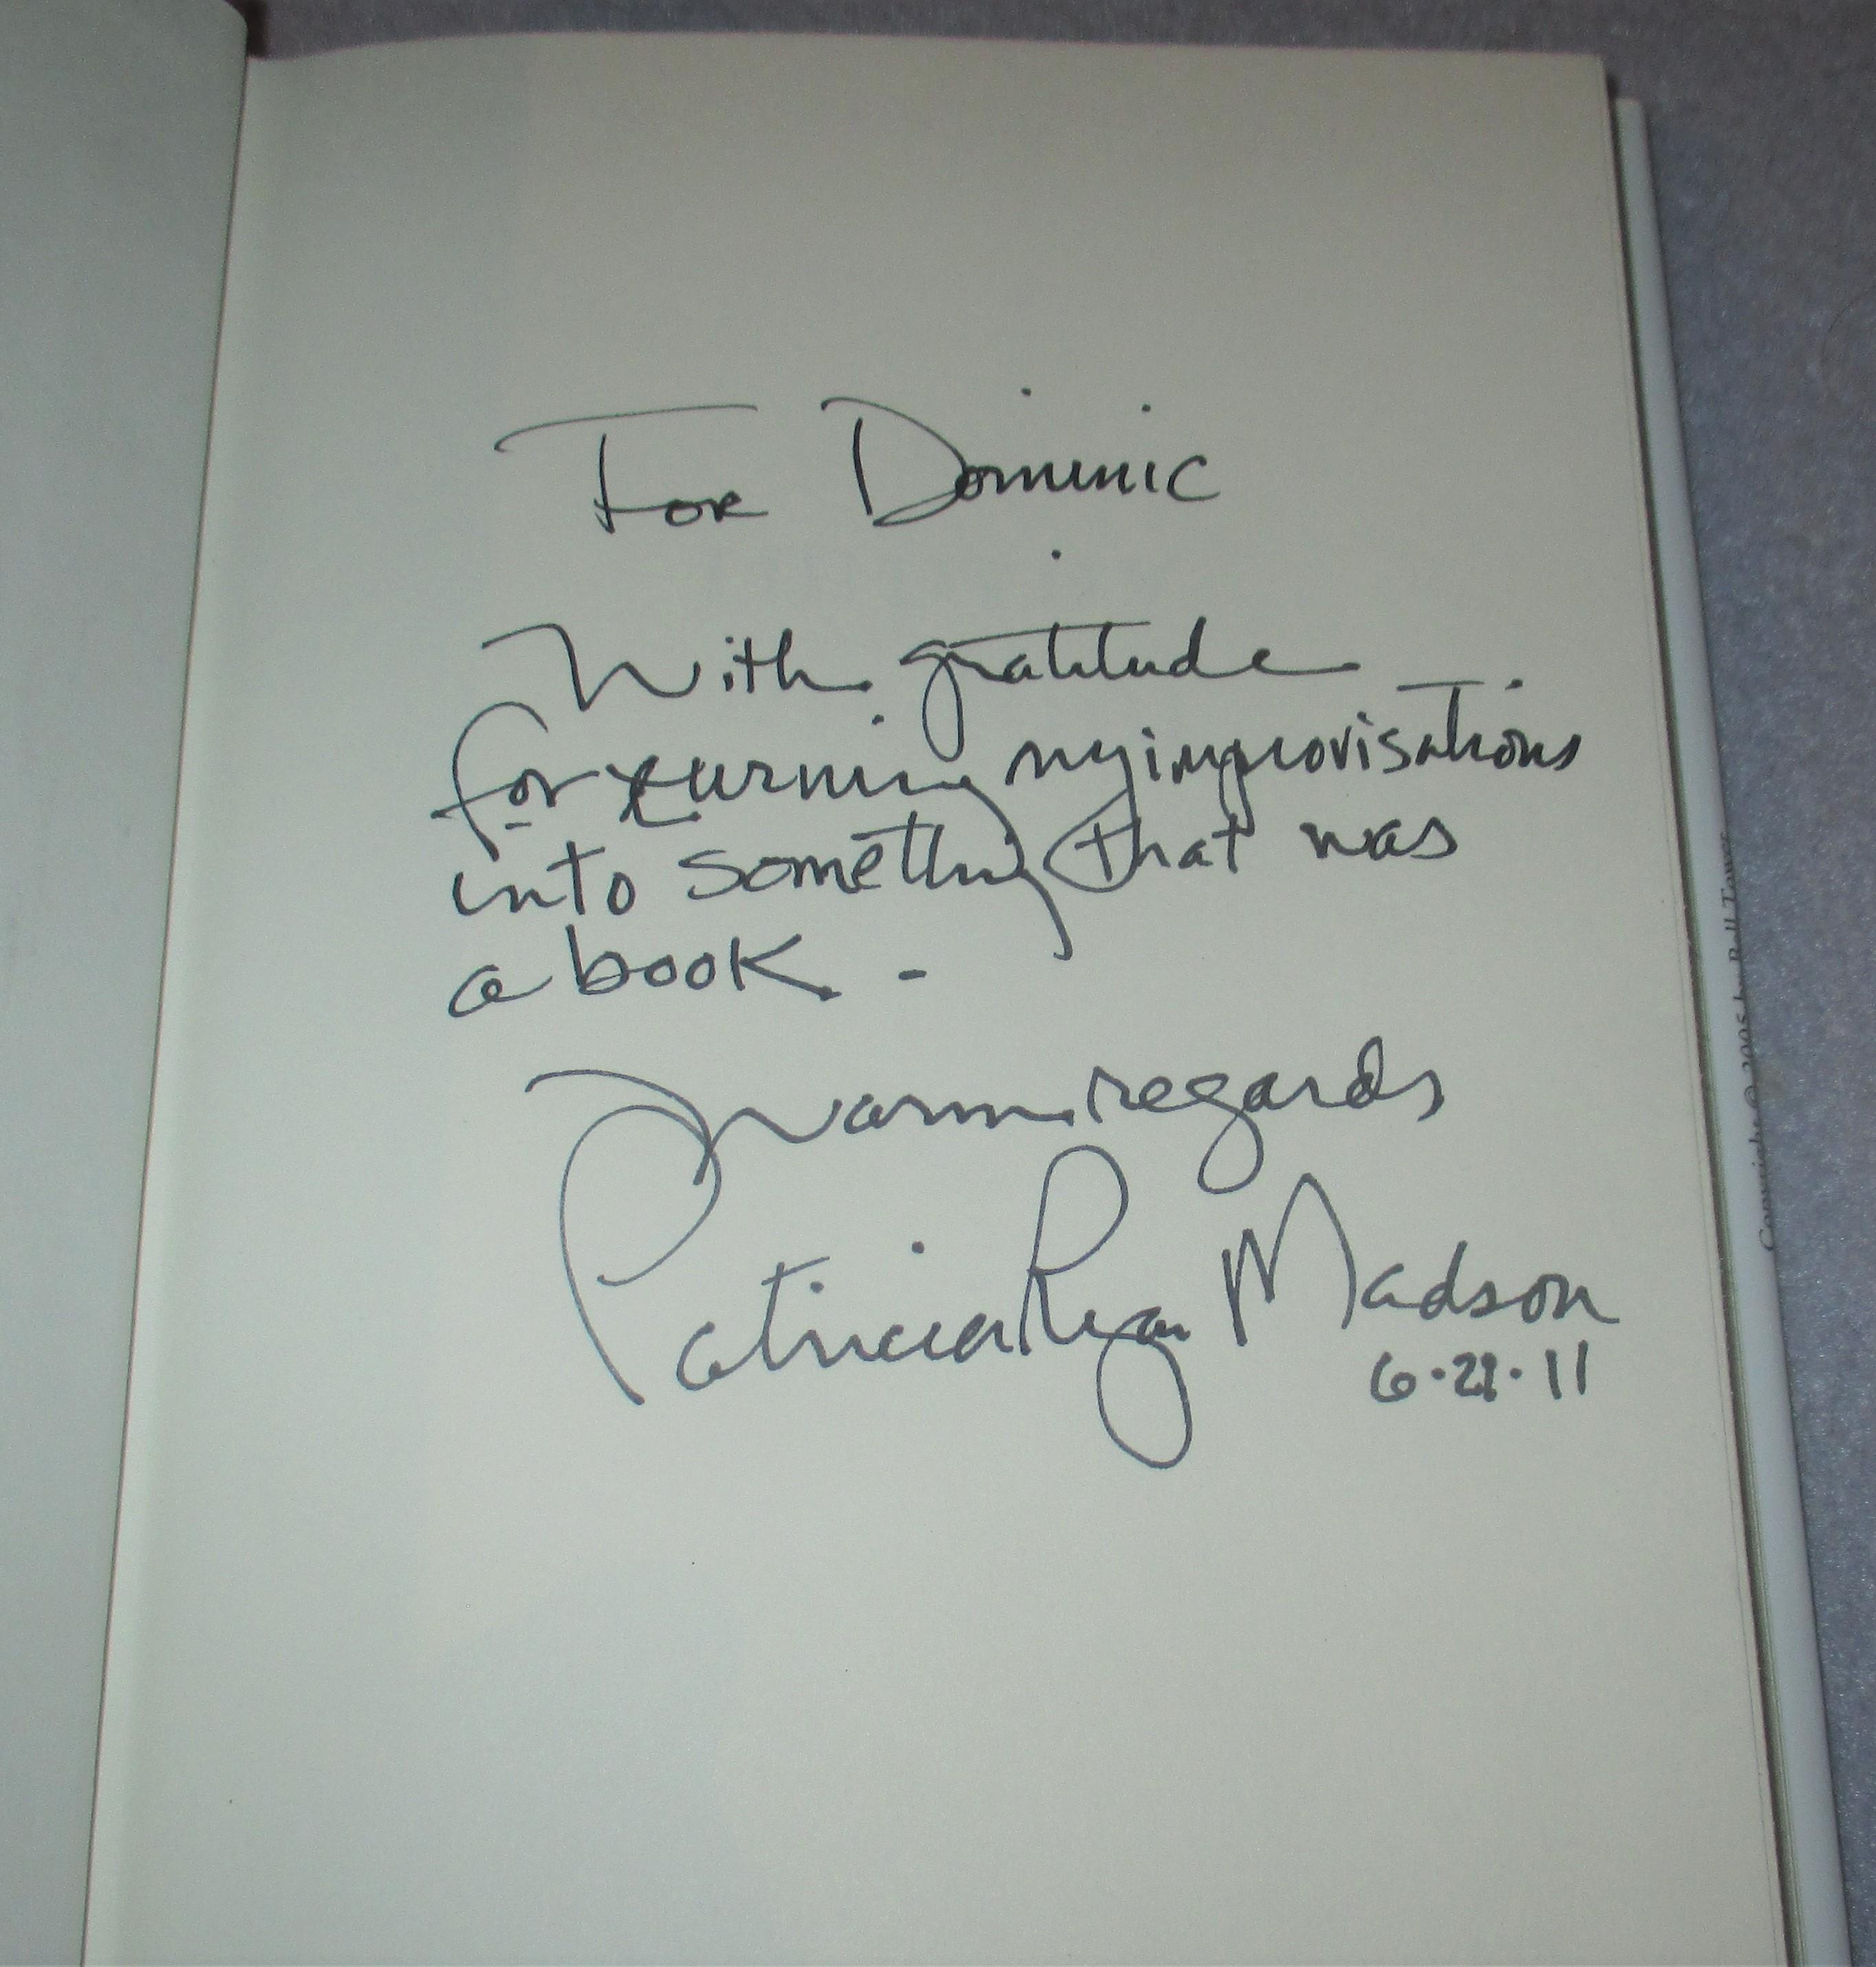 For Dominic
With gratitude
for turning my improvisations
into something that was
a book. -
Warm regards
Patricia Ryan Madson
6.21.11
Copyright © 2005 by Bell Tower